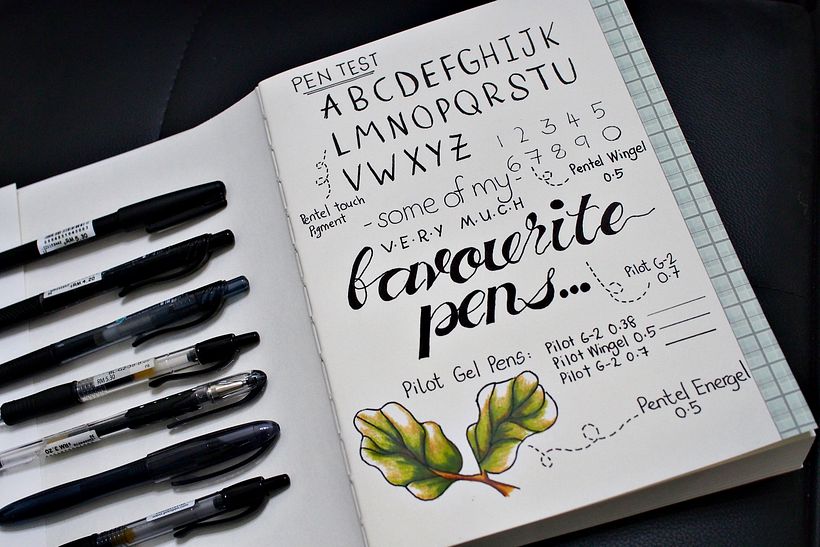 PEN TEST
ABCDEFGHIJK
LMNOPQRSTU
VWXYZ
1 2 3 4 5
6 7 8 9 0
Pentel touch
Pigment
Pentel Wingel
0.5
- some of my -
V·E·R·Y M·U·C·H
favourite
pens...
Pilot G-2
0.7
Pilot Gel Pens:
Pilot G-2 0.38
Pilot Wingel 0.5
Pilot G-2 0.7
Pentel Energel
0.5